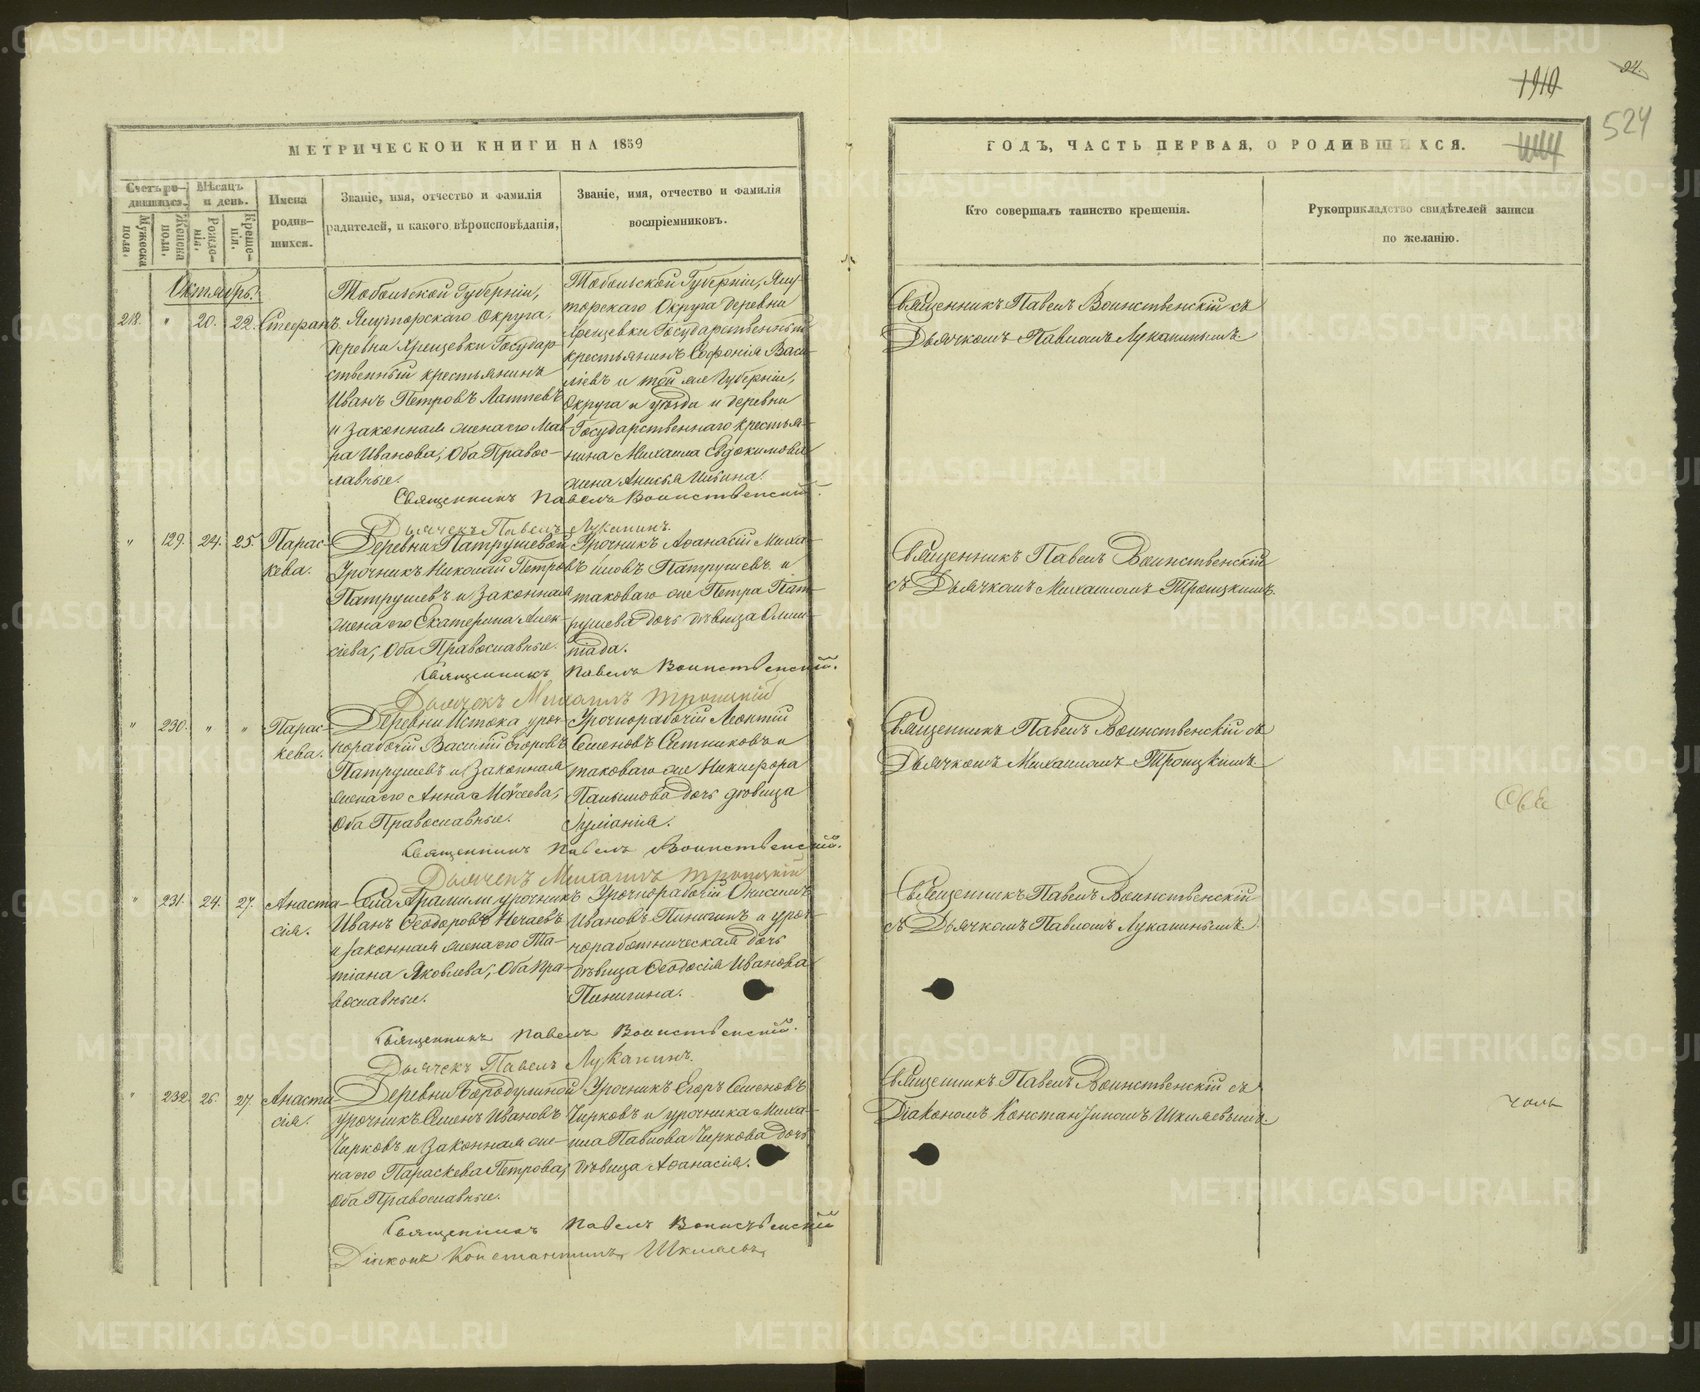 METRIKI.GASO-URAL.RU
1910
24.
524
МЕТРИЧЕСКОЙ КНИГИ НА 1859
ГОДЪ, ЧАСТЬ ПЕРВАЯ, О РОДИВШИХСЯ.
Счетъ родившихся.
Мужеска пола.
Женска пола.
Мѣсяцъ и день.
Рожденія.
Крещенія.
Имена родившихся.
Званіе, имя, отчество и фамилія
родителей, и какого вѣроисповѣданія,
Званіе, имя, отчество и фамилія
воспріемниковъ.
Кто совершалъ таинство крещенія.
Рукоприкладство свидѣтелей записи
по желанію.
Октябрь.
218. " 20. 22. Стефанъ.
Тобольской Губерніи,
Ялуторскаго Округа,
деревни Государ
ственный крестьянинъ
Иванъ Петровъ
и законная жена его Мав
ра Иванова, Оба Правос-
лавные.
Тобольской Губерніи, Ялу
торскаго Округа деревни
Государственный
крестьянинъ Софонія Васи-
ліевъ и той же Губерніи,
Округа и деревни
Государственнаго крестья-
нина Михаила Евдокимова
жена Анисья
Священникъ Павелъ Воинственскій.
Дьячекъ Павелъ Луканинъ.
Священникъ Павелъ Воинственскій съ
Дьячкомъ Павломъ Луканинымъ.
" 129. 24. 25. Парас-
кева.
Деревни Патрушевой
Урочникъ Николай Петровъ
Патрушевъ и законная
жена его Екатерина Алек-
сіева, Оба Православные.
Урочникъ Аѳанасій Миха-
иловъ Патрушевъ и
таковаго же Петра Пат-
рушева дочь дѣвица Олим-
піада.
Священникъ Павелъ Воинственскій.
Дьячекъ Михаилъ Троицкій
Священникъ Павелъ Воинственскій
съ Дьячкомъ Михаиломъ Троицкимъ.
" 230. " " Парас-
кева.
Деревни Истока уроч-
норабочій Василій Егоровъ
Патрушевъ и законная
жена его Анна Моѵсеева,
Оба Православные.
Урочнорабочій Леонтій
Семеновъ Ситниковъ и
таковаго же Никифора
дочь дѣвица
Іуліанія.
Священникъ Павелъ Воинственскій.
Дьячекъ Михаилъ Троицкій
Священникъ Павелъ Воинственскій съ
Дьячкомъ Михаиломъ Троицкимъ
" 231. 24. 27. Анаста-
сія.
Села Арамили урочникъ
Иванъ Ѳеодоровъ Нечаевъ
и законная жена его Та-
тіана Яковлева, Оба Пра-
вославные.
Урочнорабочій Онисимъ
Ивановъ Пинигинъ и уроч-
норабоническая дочь
дѣвица Ѳеодосія Иванова
Пинигина.
Священникъ Павелъ Воинственскій.
Дьячекъ Павелъ Луканинъ.
Священникъ Павелъ Воинственскій
съ Дьячкомъ Павломъ Луканинымъ.
" 232. 26. 27. Анаста
сія.
Деревни Бородулиной
урочникъ Семенъ Ивановъ
Чирковъ и законная же-
на его Параскева Петрова,
Оба Православные.
Урочникъ Егоръ Семеновъ
Чирковъ и урочника Миха-
ила Павлова Чиркова дочь
дѣвица Аѳанасія.
Священникъ Павелъ Воинственскій
Діаконъ Константинъ Шкляевъ
Священникъ Павелъ Воинственскій съ
Діакономъ Константиномъ Шкляевымъ.